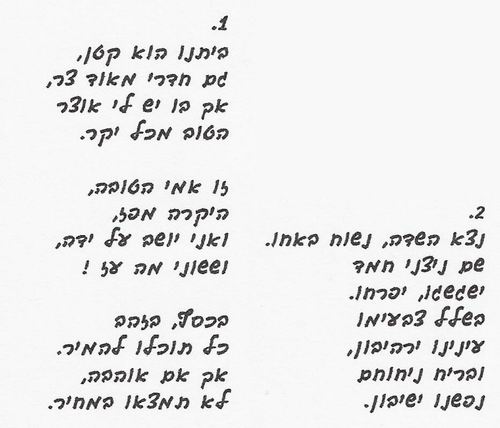 1.
ביתנו הוא קטן,
גם חדרי מאוד צר,
אך בו יש לי אוצר
הטוב מכל יקר.
זו אמי הטובה,
היקרה מפז,
ואני יושב על ידה,
וששוני מה עז !
בכסף, בזהב
כל תוכלו להמיר.
אך אם אוהבה,
לא תמצאו במחיר.
2.
נצא השדה, נשוח באחו.
שם ניצני חמד
ישגשגו, יפרחו.
בשלל צבעימו
עינינו ירהיבון,
ובריח ניחוחם
נפשנו ישיבון.